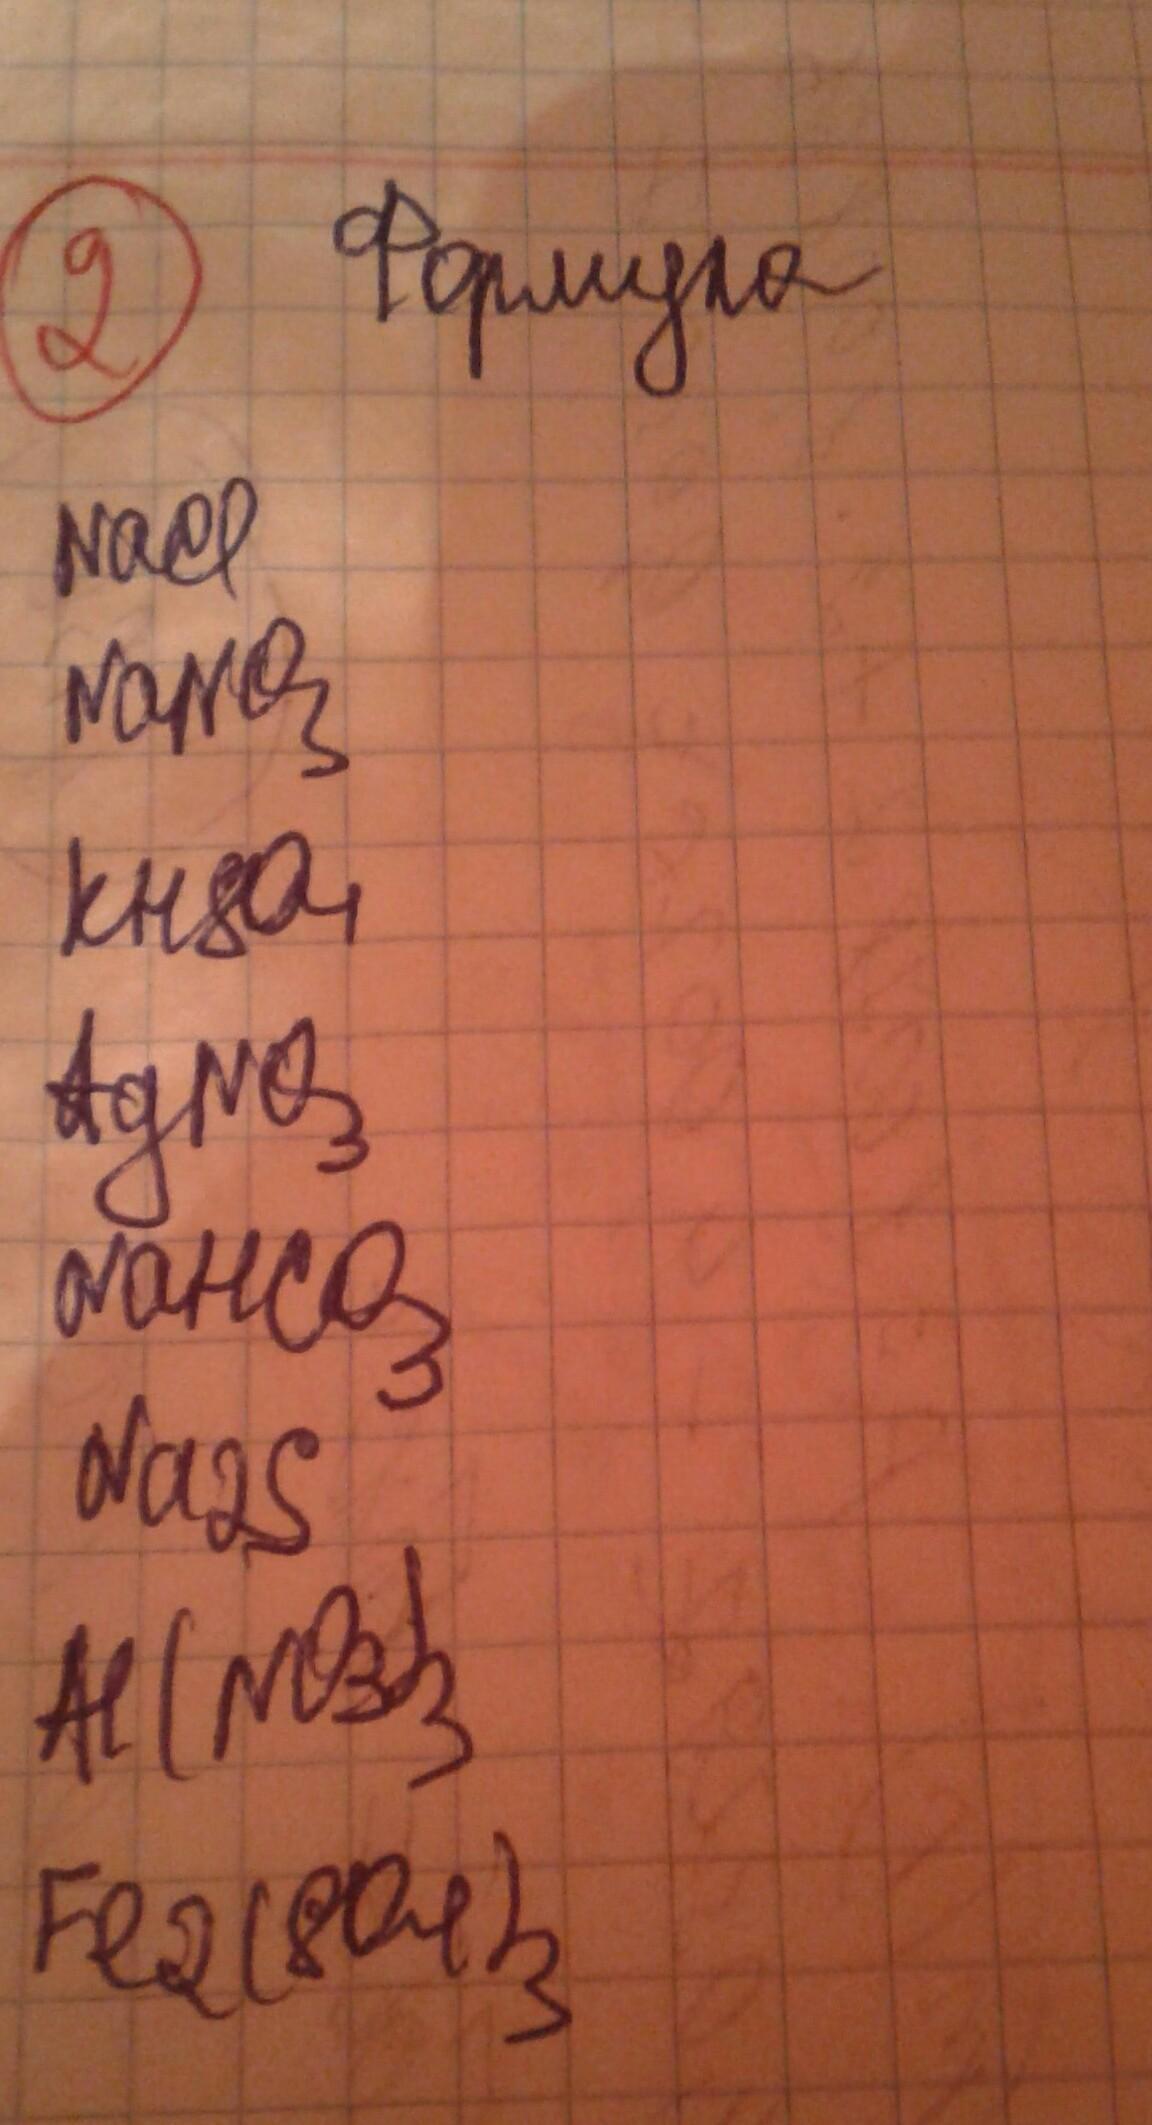 2 Формула
NaCl
NaNO3
KHSO4
AgNO3
NaHCO3
Na2S
Al(NO3)3
Fe2(SO4)3